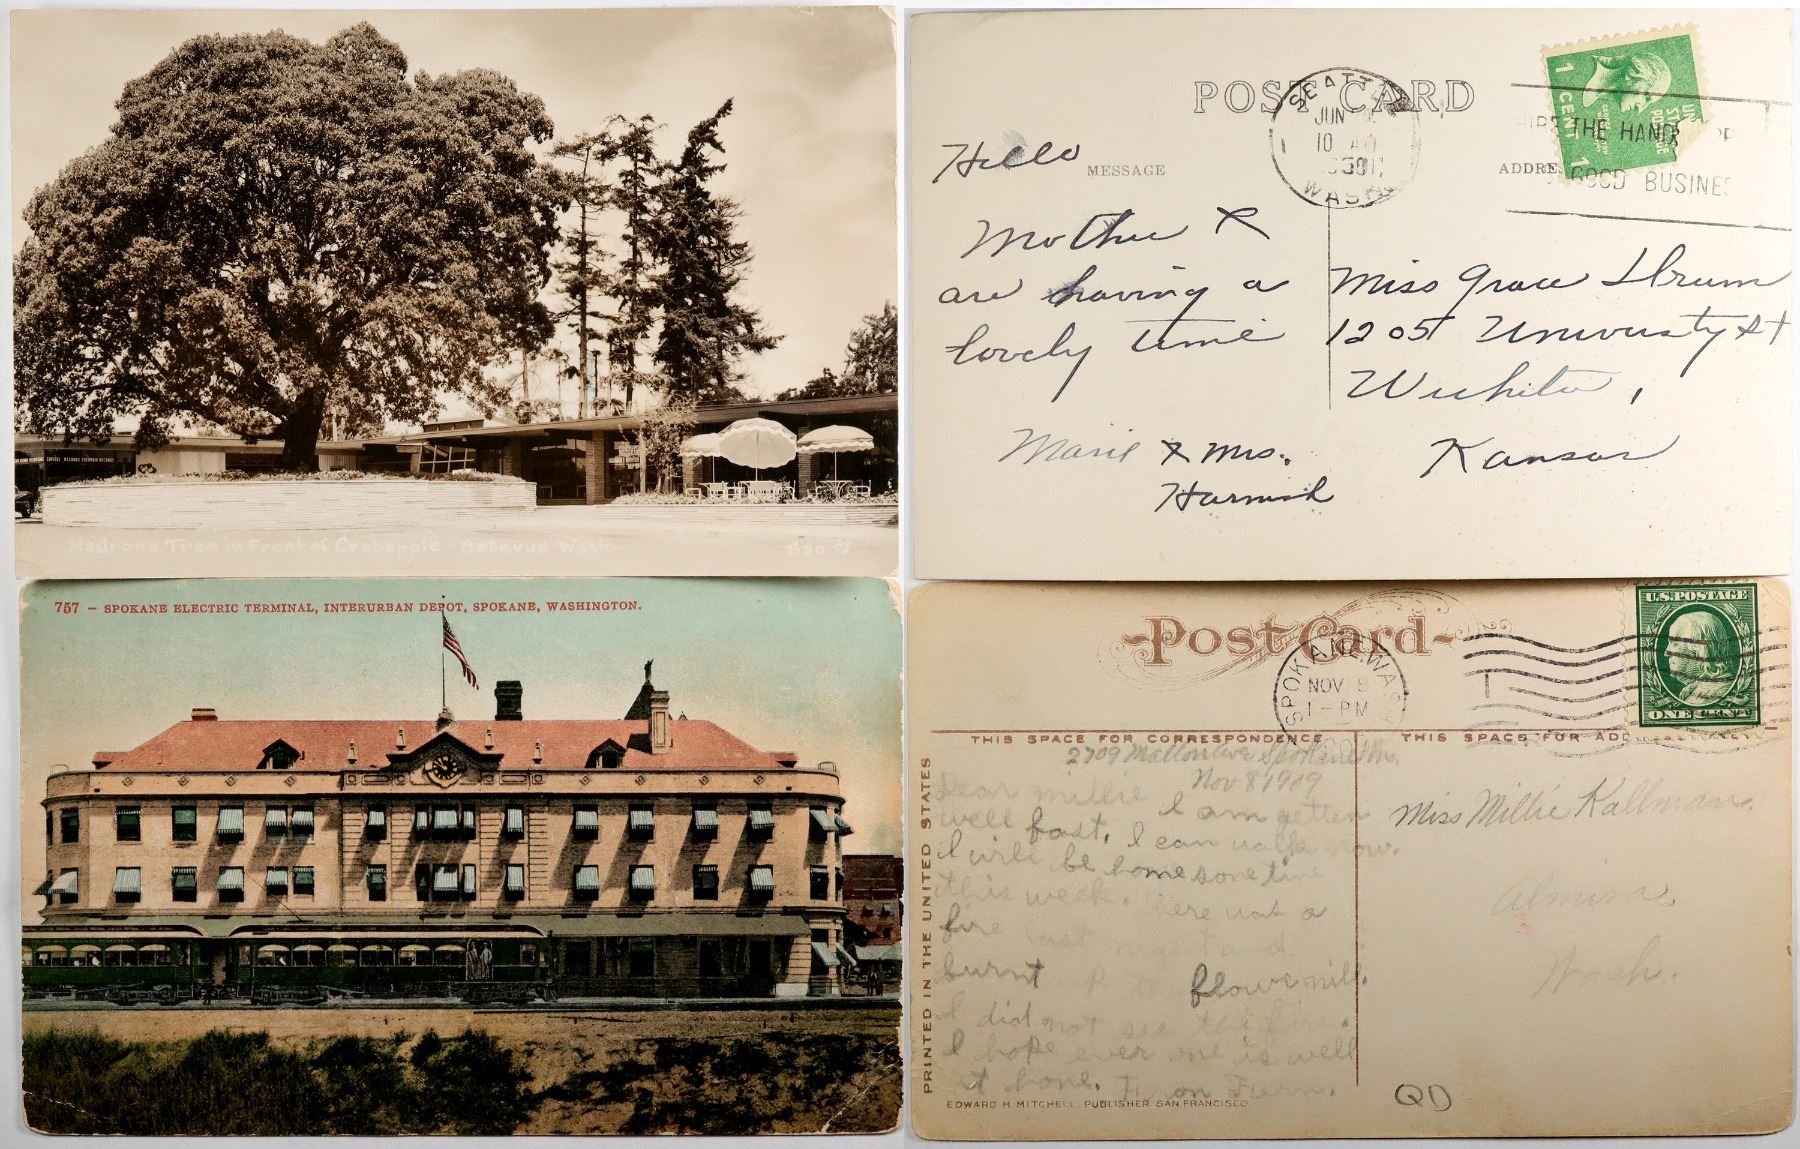 CAPITOL RECORDS COLUMBIA RECORDS
Madrona Tree in Front of Crabapple - Bellevue Wash.
POST CARD
SEATTLE
JUN
10 AM
WASH.
THE HANDI
GOOD BUSINES
1 CENT 1
MESSAGE
ADDRES
Hello
Mother &
are having a
lovely time
Marie & Mrs.
Harnish
Miss Grace Shrum
1205 University St
Wichita,
Kansas
757 – SPOKANE ELECTRIC TERMINAL, INTERURBAN DEPOT, SPOKANE, WASHINGTON.
Post Card
SPOKANE, WASH.
NOV 8
1 – PM
U.S. POSTAGE
ONE CENT
THIS SPACE FOR CORRESPONDENCE
THIS SPACE FOR ADD
2709 Mallon Ave Spokane Wn.
Nov 8 1909
Dear Millie I am getten
well fast. I can walk now.
I will be home sone time
this week. There was a
fire last night and
burnt up the flour mill.
I did not see the fire.
I hope ever one is well
at home.
Miss Millie Kallman.
Almira,
Wash.
PRINTED IN THE UNITED STATES
EDWARD H. MITCHELL, PUBLISHER, SAN FRANCISCO
QD